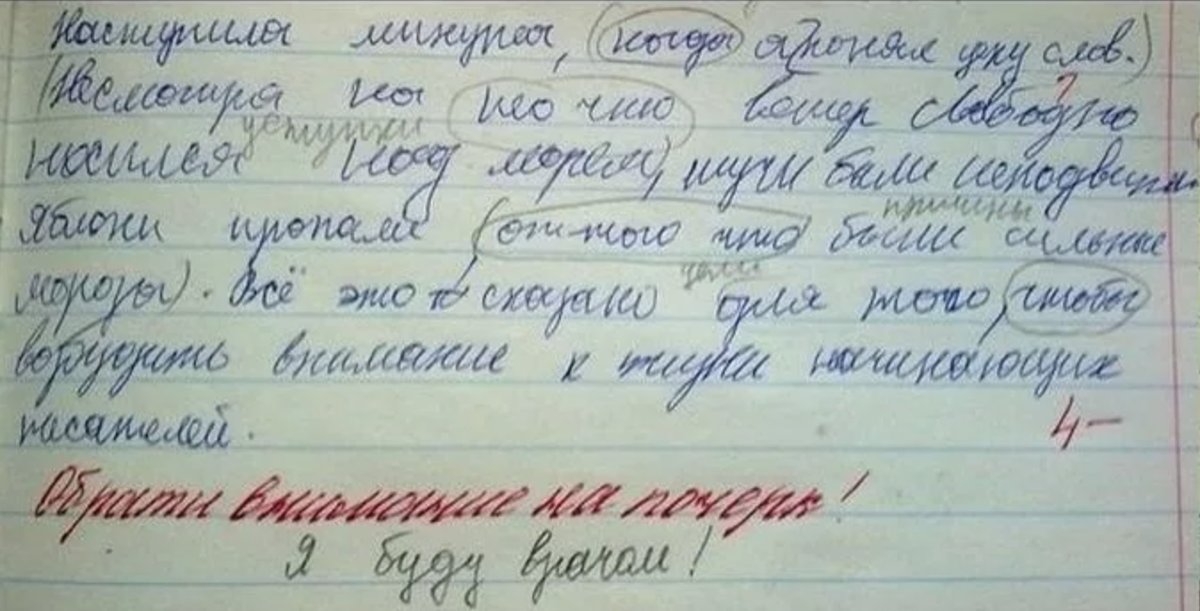 Наступила минута, (когда я понял цену слов.)
(Несмотря на то что ветер свободно
уступки
носился над морем), тучи были неподвижны
причины
Яблони пропали (оттого что были сильные
цели
морозы). Всё это сказано для того, чтобы
возбудить внимание к жизни начинающих
писателей.
4-
Обрати внимание на почерк!
Я буду врачом!